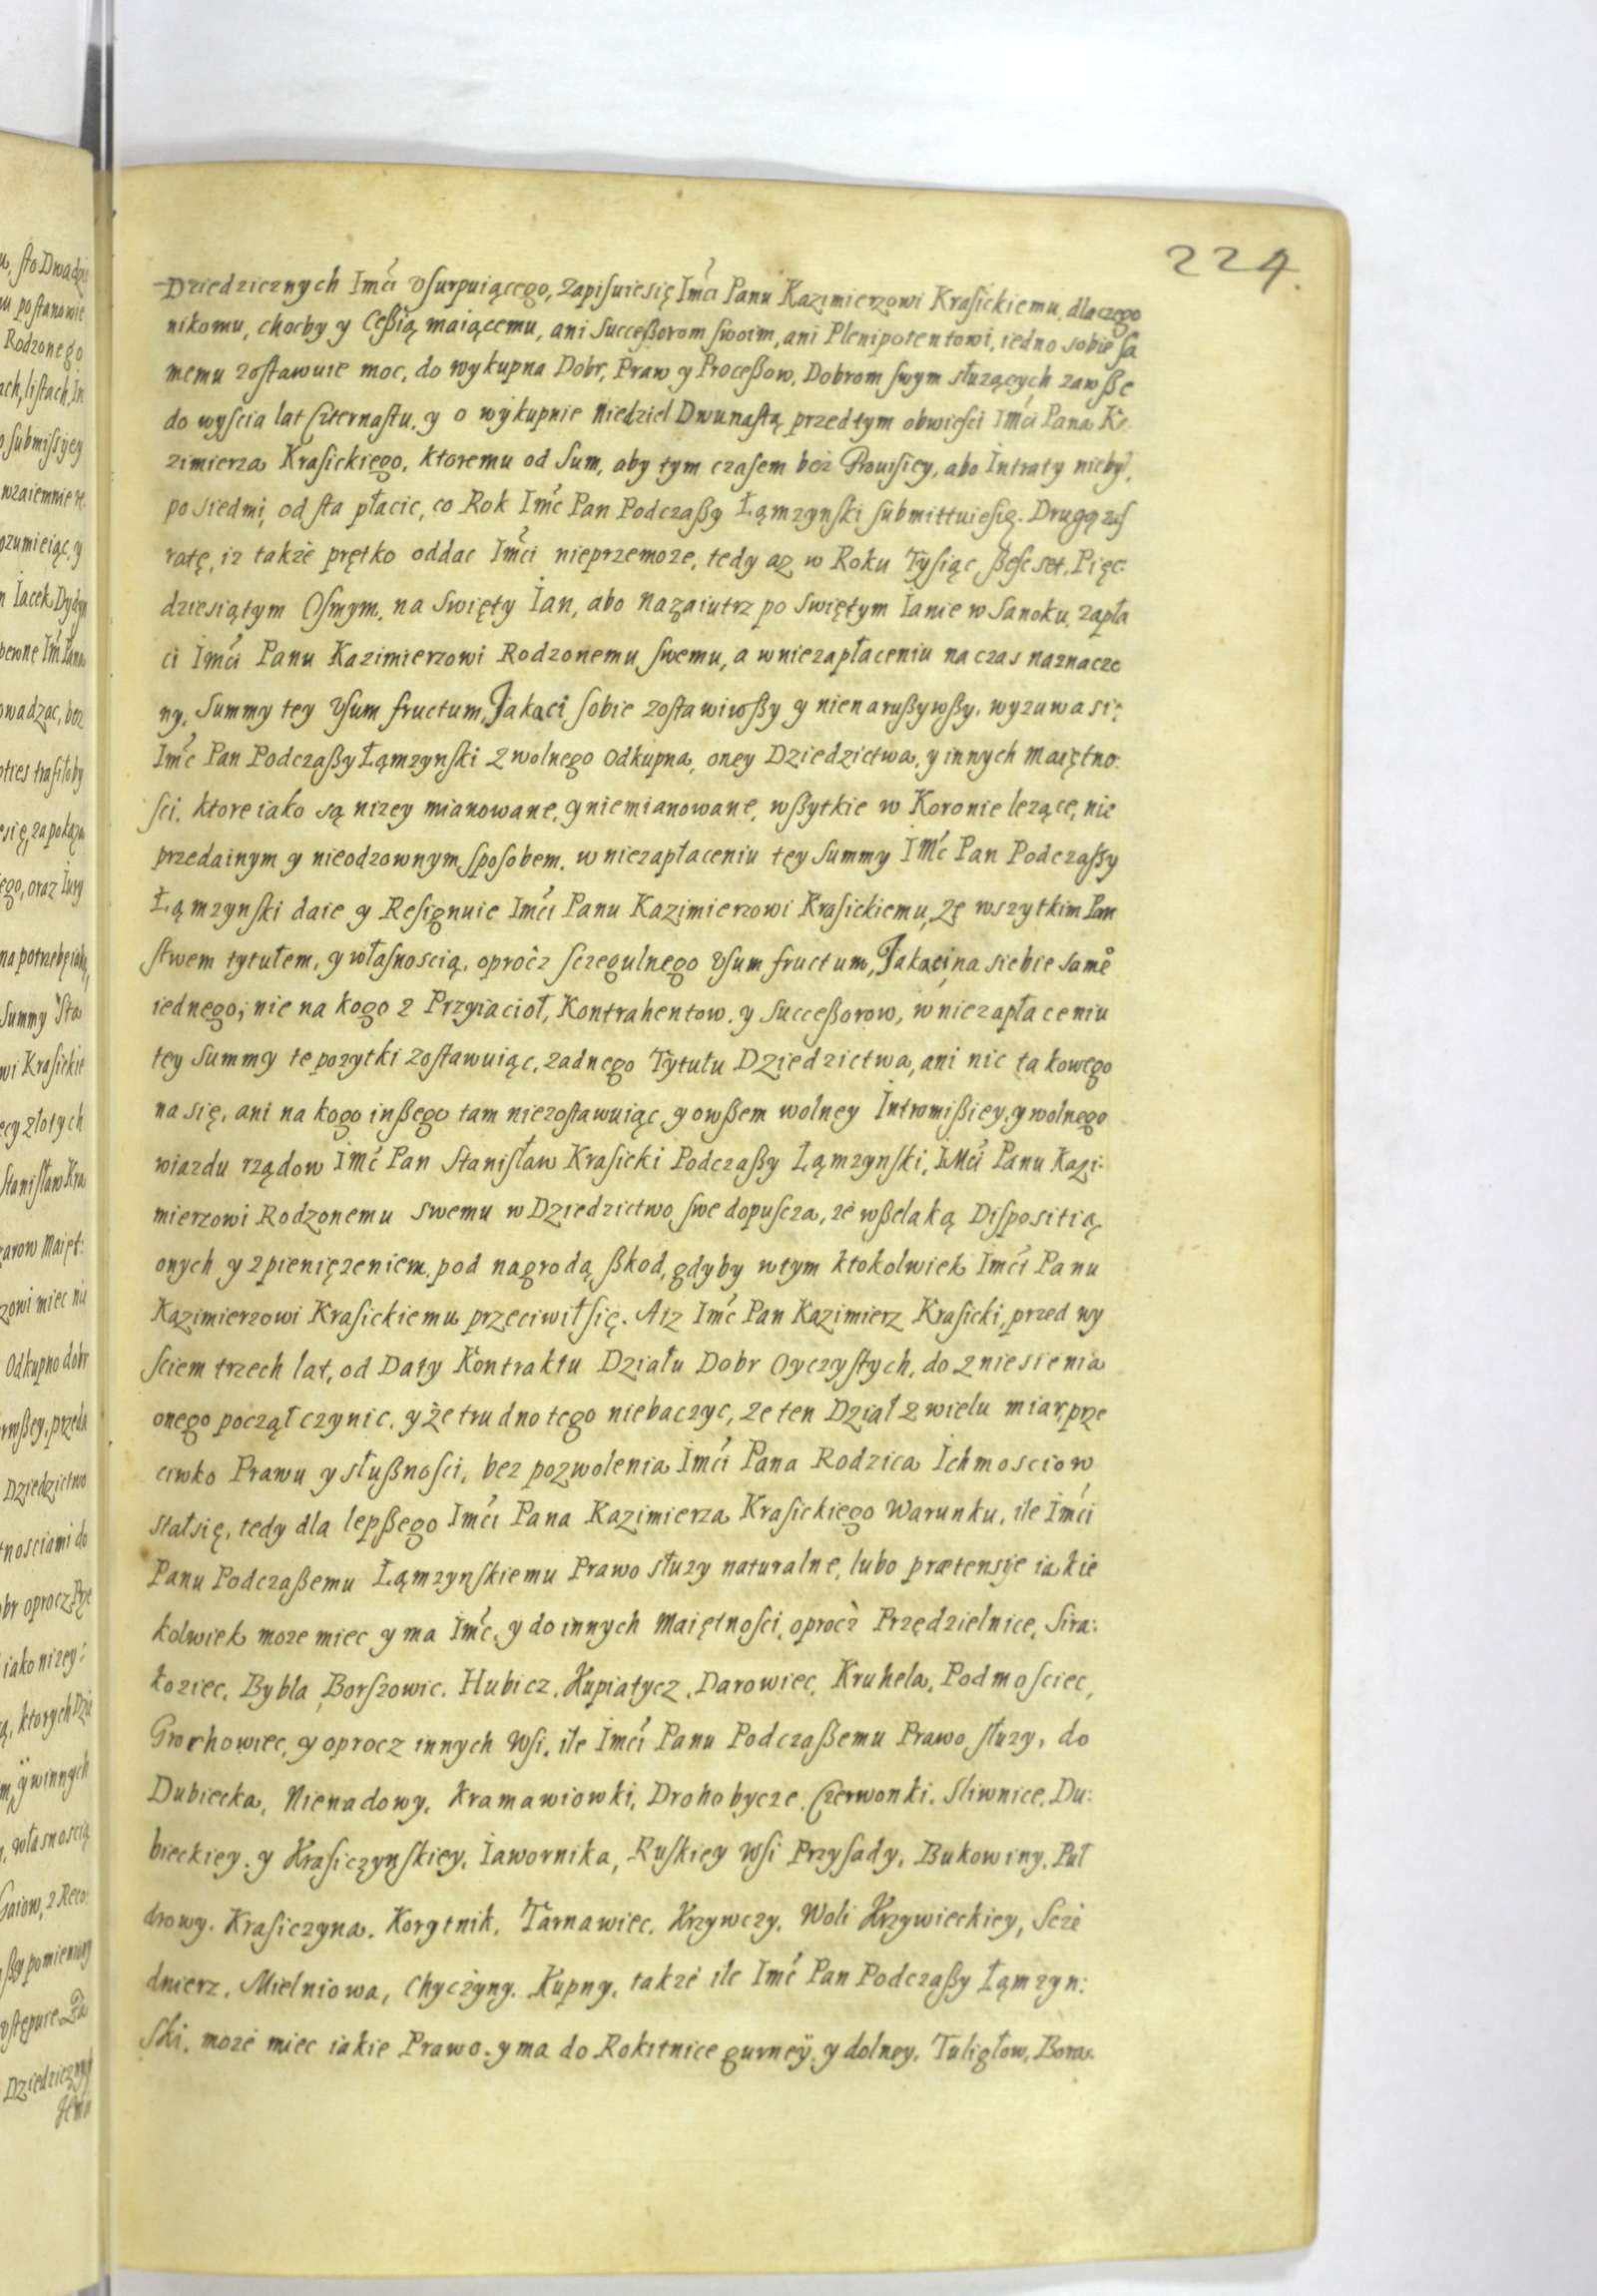 224.
Dziedzicznych Imći Vsurpuiącego, zapisuiesię Imći Panu Kazimierzowi Krasickiemu, dlaczego
nikomu, chocby y Ceßią maiącemu, ani Succeßorom swoim, ani Plenipotentowi, iedno sobie sa
memu zostawuie moc, do wykupna Dobr, Praw y Proceßow, Dobrom swym słuzących zawße
do wyscia lat czternastu, y o wykupnie Niedziel Dwunastą przedtym obwiesci Imći Pana Ka
zimierza Krasickiego, ktoremu od Sum, aby tym czasem bez Prouisiey, abo Intraty nieby,
po siedmi, od sta płacic, co Rok Imć Pan Podczaßy Łąmzynski submittuiesię. Drugą zas
ratę, iz także prętko oddac Imći nieprzemoze, tedy az w Roku Tysiąc ßescset, Pięc:
dziesiątym Osmym, na Swięty Ian, abo nazaiutrz po Swiętym Ianie w Sanoku, zapła
ci Imći Panu Kazimierzowi Rodzonemu swemu, a wniezapłaceniu na czas naznacze
ny, Summy tey Vsum fructum, Jakaci sobie zostawiwßy y nienarußywßy, wyzuwa się
Imć Pan Podczaßy Łąmzynski z wolnego odkupna, oney Dziedzictwa, y innych maiętno:
sci, ktore iako są nizey mianowane, y niemianowane, wßytkie w Koronie lezące, nie
przedainym y nieodzownym sposobem, w niezapłaceniu tey Summy Imć Pan Podczaßy
Łąmzynski daie y Resignuie Imći Panu Kazimierzowi Krasickiemu, ze wszytkim Pan
stwem tytułem, y własnoscią, oprocz sczegulnego Vsum fructum, Jakaci, na siebie same
iednego, nie na kogo z Przyiacioł, Kontrahentow, y Succeßorow, w niezapłaceniu
tey Summy te pozytki zostawuiąc, zadnego Tytułu Dziedzictwa, ani nic takowego
na się, ani na kogo inßego tam niezostawuiąc, y owßem wolney Intromißiey, y wolnego
wiazdu rządow Imć Pan Stanisław Krasicki Podczaßy Łąmzynski, Imći Panu Kazi:
mierzowi Rodzonemu swemu w Dziedzictwo swe dopuscza, ze wßelaką Dispositią
onych y zpieniężeniem, pod nagrodą ßkod, gdyby wtym ktokolwiek Imći Panu
Kazimierzowi Krasickiemu przeciwiłsię. A iz Imć Pan Kazimierz Krasicki, przed wy
sciem trzech lat, od Daty Kontraktu Działu Dobr Oyczystych, do zniesienia
onego począł czynic, y że trudno tego niebaczyc, ze ten Dział z wielu miar, prze
ciwko Prawu y słußnosci, bez pozwolenia Imći Pana Rodzica Ichmosciow
stałsię, tedy dla lepßego Imći Pana Kazimierza Krasickiego Warunku, ile Imći
Panu Podczaßemu Łąmzynskiemu Prawo słuzy naturalne, lubo prætensye iakie
kolwiek moze miec y ma Imć, y do innych Maiętnosci, oprocz Przędzielnice, Sira:
koziec, Bybla, Borszowic, Hubicz, Kupiatycz, Darowiec, Kruhela, Podmosciec,
Grochowiec, y oprocz innych Wsi, ile Imći Panu Podczaßemu Prawo słuzy, do
Dubiecka, Nienadowy, Kramawiowki, Drohobycze, Czerwonki, Sliwnice, Du:
bieckiey, y Krasiczynskiey, Iawornika, Ruskiey Wsi Przysady, Bukowiny, Puł
drowy, Krasiczyna, Korytnik, Tarnawiec, Krzywczy, Woli Krzywieckiey, Scze
dmierz, Mielniowa, Chyczyny, Kupny, takze ile Imć Pan Podczaßy Łąmzyn:
ski, może miec iakie Prawo, y ma do Rokitnice gurney, y dolney, Tuligłow,